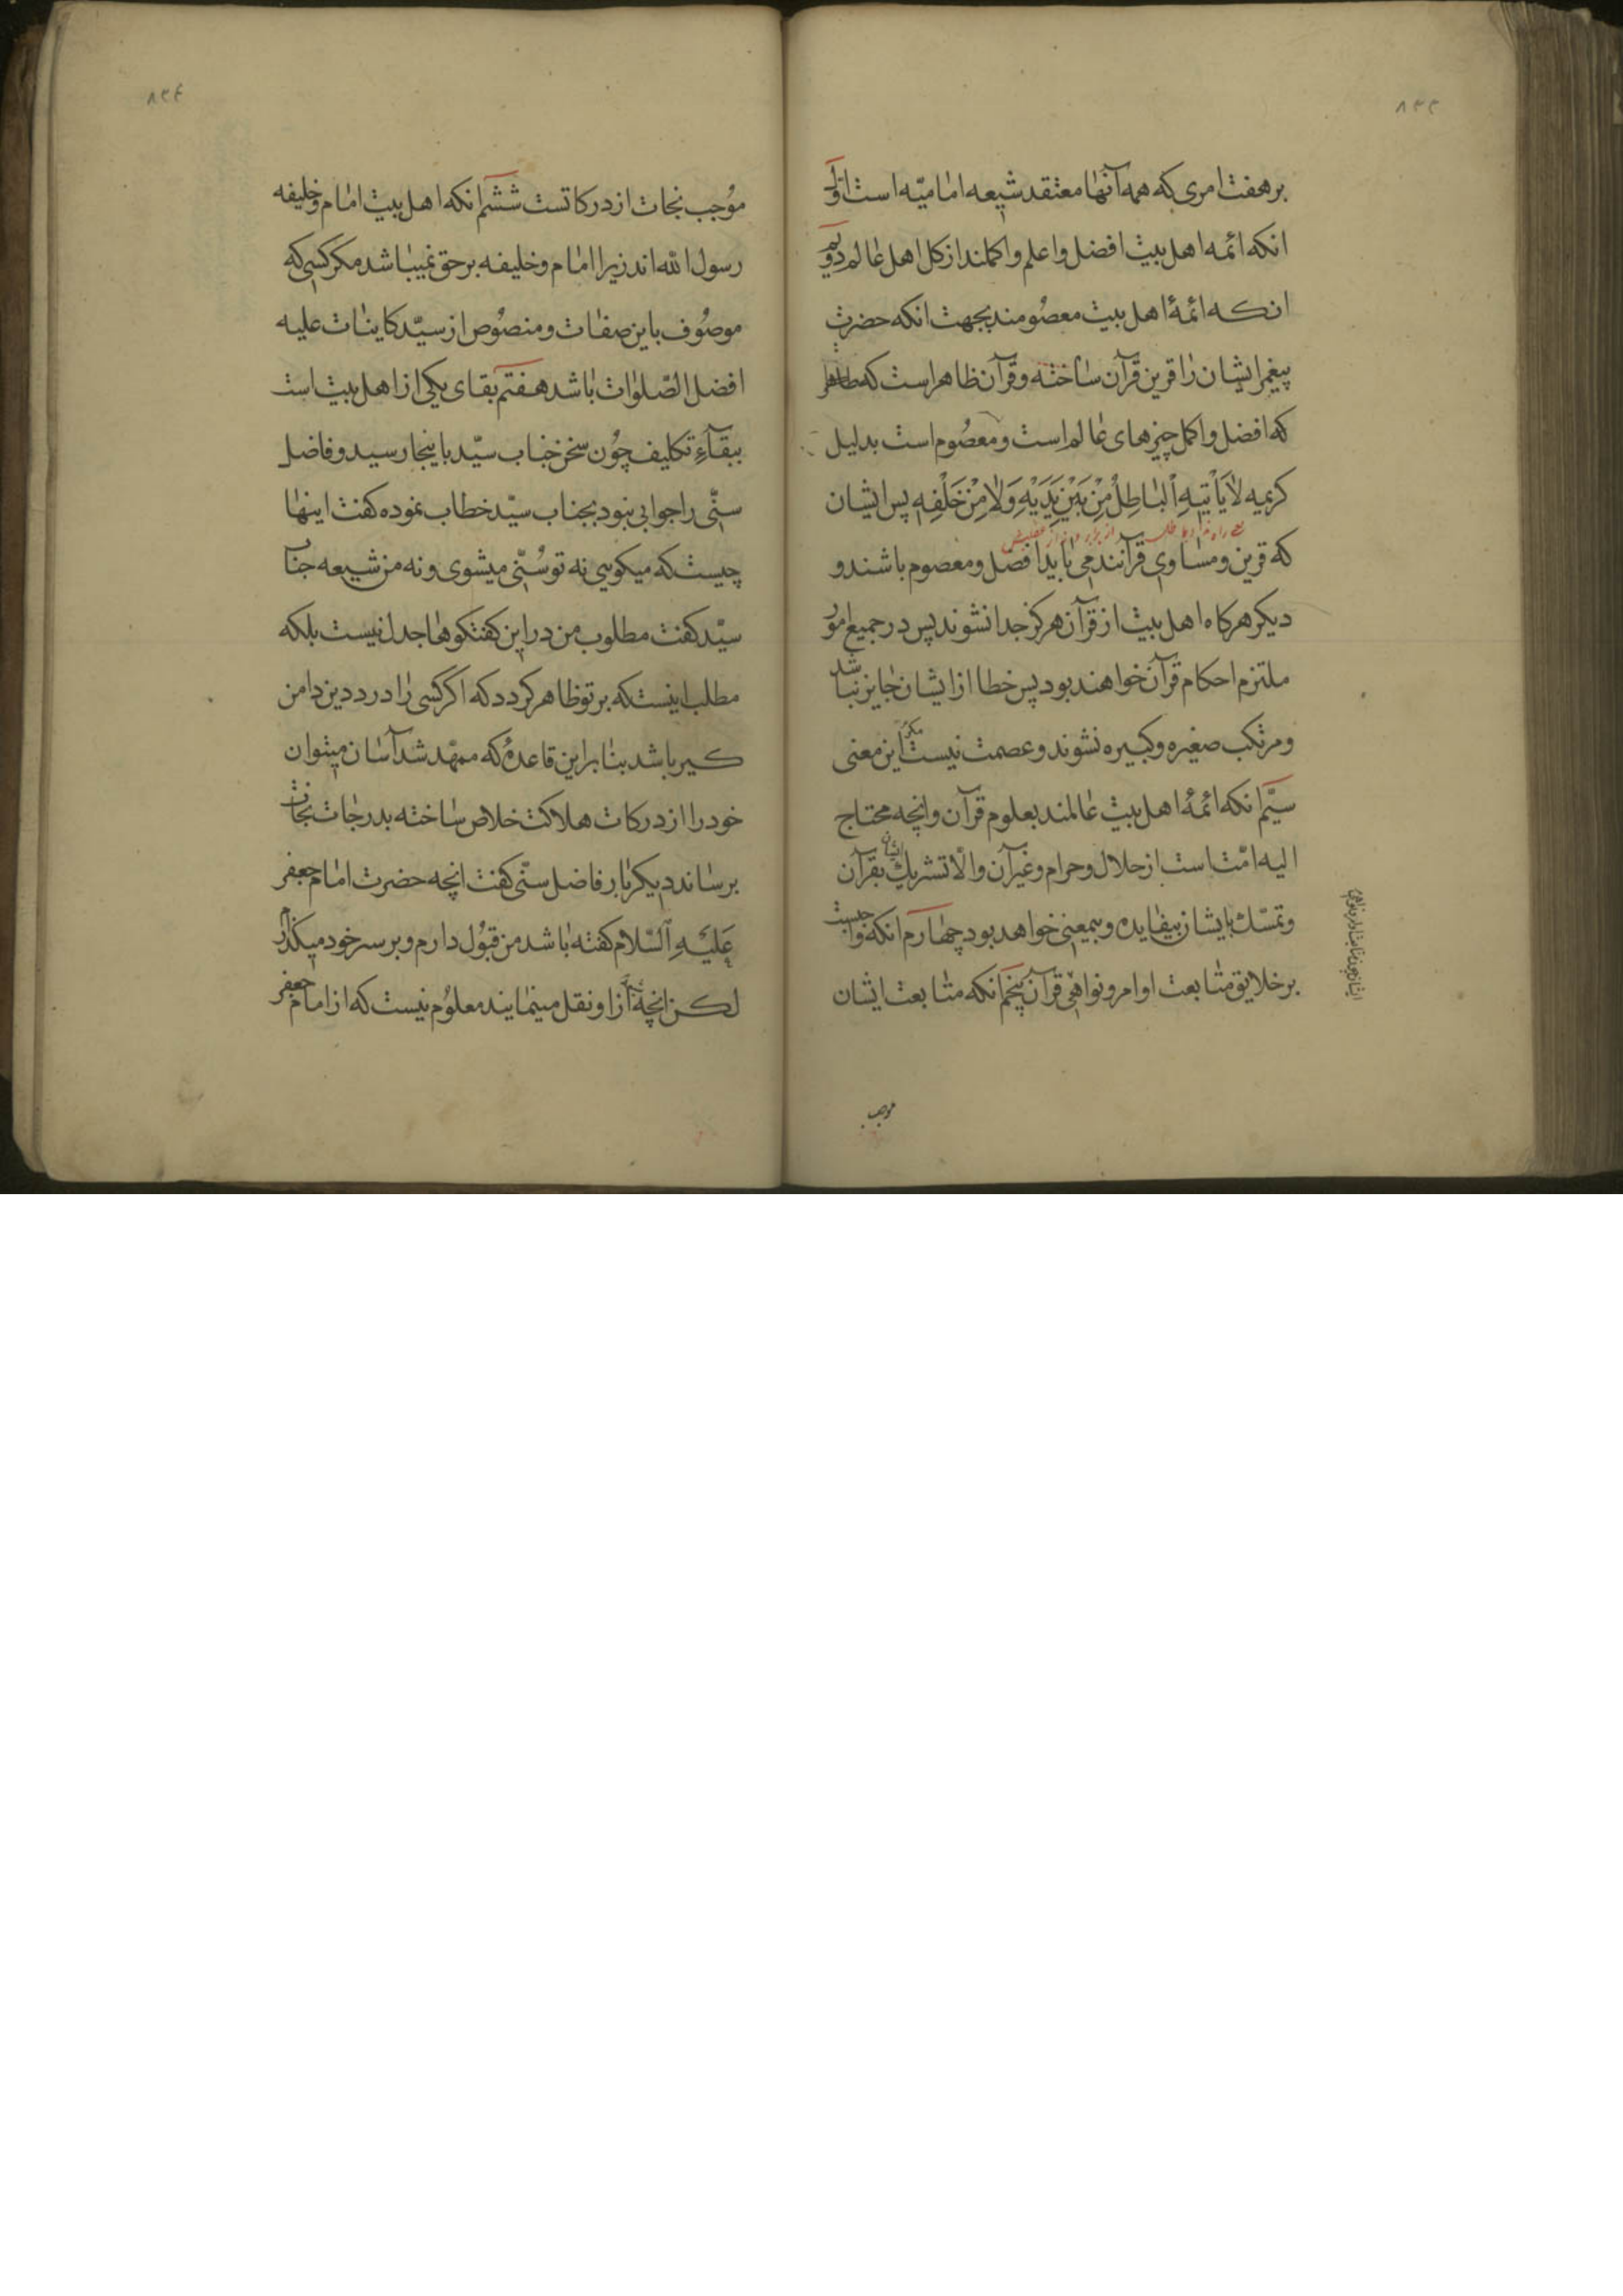 ٨٣٣
بر هفت امری که همه آنها معتقد شیعه امامیّه است اوّل
انکه ائمه اهل بیت افضل و اعلم و اکملند از کل اهل عالم دویّم
انکه ائمهٔ اهل بیت معصومند بجهت انکه حضرت
پیغمبر ایشان را قرین قرآن ساخته و قرآن ظاهر است که
که افضل و اکمل چیزهای عالم است و معصوم است بدلیل
کریمه لَا یَأْتِیهِ اَلْبَاطِلُ مِنْ بَیْنِ یَدَیْهِ وَلَا مِنْ خَلْفِهِ پس ایشان
که قرین و مساوی قرآنند می باید افضل و معصوم باشند و
دیکر هرکاه اهل بیت از قرآن هرکز جدا نشوند پس در جمیع امور
ملتزم احکام قرآن خواهند بود پس خطا از ایشان جایز نباشد
و مرتکب صغیره و کبیره نشوند و عصمت نیست مکر این معنی
سیّم انکه ائمهٔ اهل بیت عالمند بعلوم قرآن و انچه محتاج
الیه امّت است از حلال و حرام و غیرآن و الّا تشریك ایشان بقرآن
و تمسّك بایشان بیفایده و بیمعنی خواهد بود چهارم انکه واجبست
بر خلایق متابعت اوامر و نواهی قرآن پنجم انکه متابعت ایشان
موجب
٨٣٤
موجب نجات از درکاتست ششم انکه اهل بیت امام و خلیفه
رسول الله اند زیرا امام و خلیفه بر حق نمیباشد مکر کسی که
موصوف باین صفات و منصوص از سیّد کاینات علیه
افضل الصّلوات باشد هفتم بقای یکی از اهل بیت است
ببقآءِ تکلیف چون سخن جناب سیّد باینجا رسید و فاضل
سنّی را جوابی نبود بجناب سیّد خطاب نموده کفت اینها
چیست که میکویی نه تو سُنّی میشوی و نه من شیعه جناب
سیّد کفت مطلوب من در این کفتکوها جدل نیست بلکه
مطلب اینست که بر تو ظاهر کردد که اکر کسی را درد دین دامن
کیر باشد بنابر این قاعدهٔ که ممهّد شد آسان میتوان
خود را از درکات هلاکت خلاص ساخته بدرجات نجات
برساند دیکر بار فاضل سنّی کفت انچه حضرت امام جعفر
عَلَیْهِ اَلسَّلام کفته باشد من قبول دارم و بر سر خود میکذارم
لکن انچه از او نقل مینمایند معلوم نیست که از امام جعفر